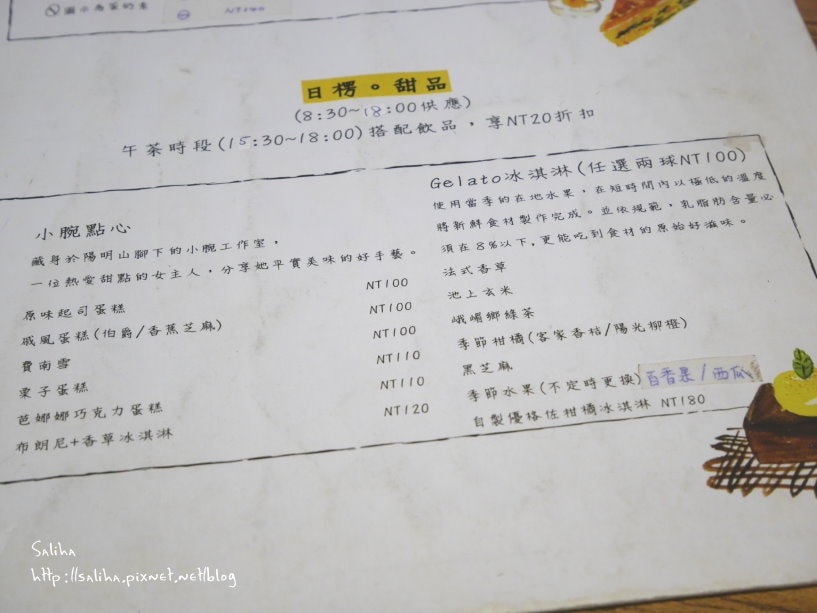 NT140
日楞。甜品
(8:30~18:00供應)
午茶時段(15:30~18:00)搭配飲品，享NT20折扣
小腕點心
藏身於陽明山腳下的小腕工作室，
一位熱愛甜點的女主人，分享她平實美味的好手藝。
原味起司蛋糕 NT100
戚風蛋糕(伯爵/香蕉芝麻) NT100
費南雪 NT100
栗子蛋糕 NT110
芭娜娜巧克力蛋糕 NT110
布朗尼+香草冰淇淋 NT120
Gelato冰淇淋(任選兩球NT100)
使用當季的在地水果，在短時間內以極低的溫度
將新鮮食材製作完成。並依規範，乳脂肪含量必
須在8%以下，更能吃到食材的原始好滋味。
法式香草
池上玄米
峨嵋鄉綠茶
季節柑橘(客家香桔/陽光柳橙)
黑芝麻
季節水果(不定時更換)百香果/西瓜
自製優格佐柑橘冰淇淋 NT180
Saliha
http://saliha.pixnet.net/blog